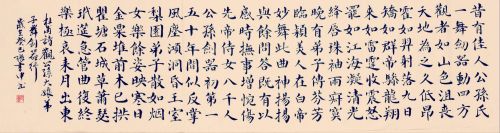 昔有佳人公孫氏
一舞劍器動四方
觀者如山色沮喪
天地為之久低昂
霍如羿射九日落
矯如群帝驂龍翔
來如雷霆收震怒
罷如江海凝清光
絳唇珠袖兩寂寞
晚有弟子傳芬芳
臨潁美人在白帝
妙舞此曲神揚揚
與余問答既有以
感時撫事增惋傷
先帝侍女八千人
公孫劍器初第一
五十年間似反掌
風塵澒洞昏王室
梨園弟子散如煙
女樂餘姿映寒日
金粟堆前木已拱
瞿塘石城草蕭瑟
玳筵急管曲復終
樂極哀來月東出
杜甫詩觀公孫大娘弟
子舞劍器行